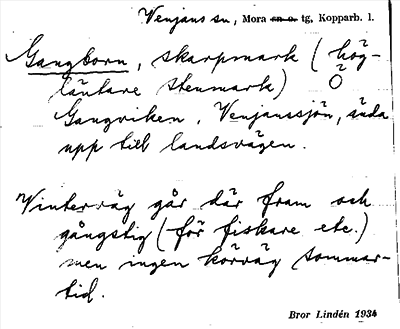 Venjans sn, Mora sn o. tg, Kopparb. l.
Gangborn, skarpmark (hög-
läntare stenmark) Ö
Gangviken, Venjanssjön, ända
upp till landsvägen.
Vinterväg går där fram och
gångstig (för fiskare etc.)
men ingen körväg sommar-
tid.
Bror Lindén 1934